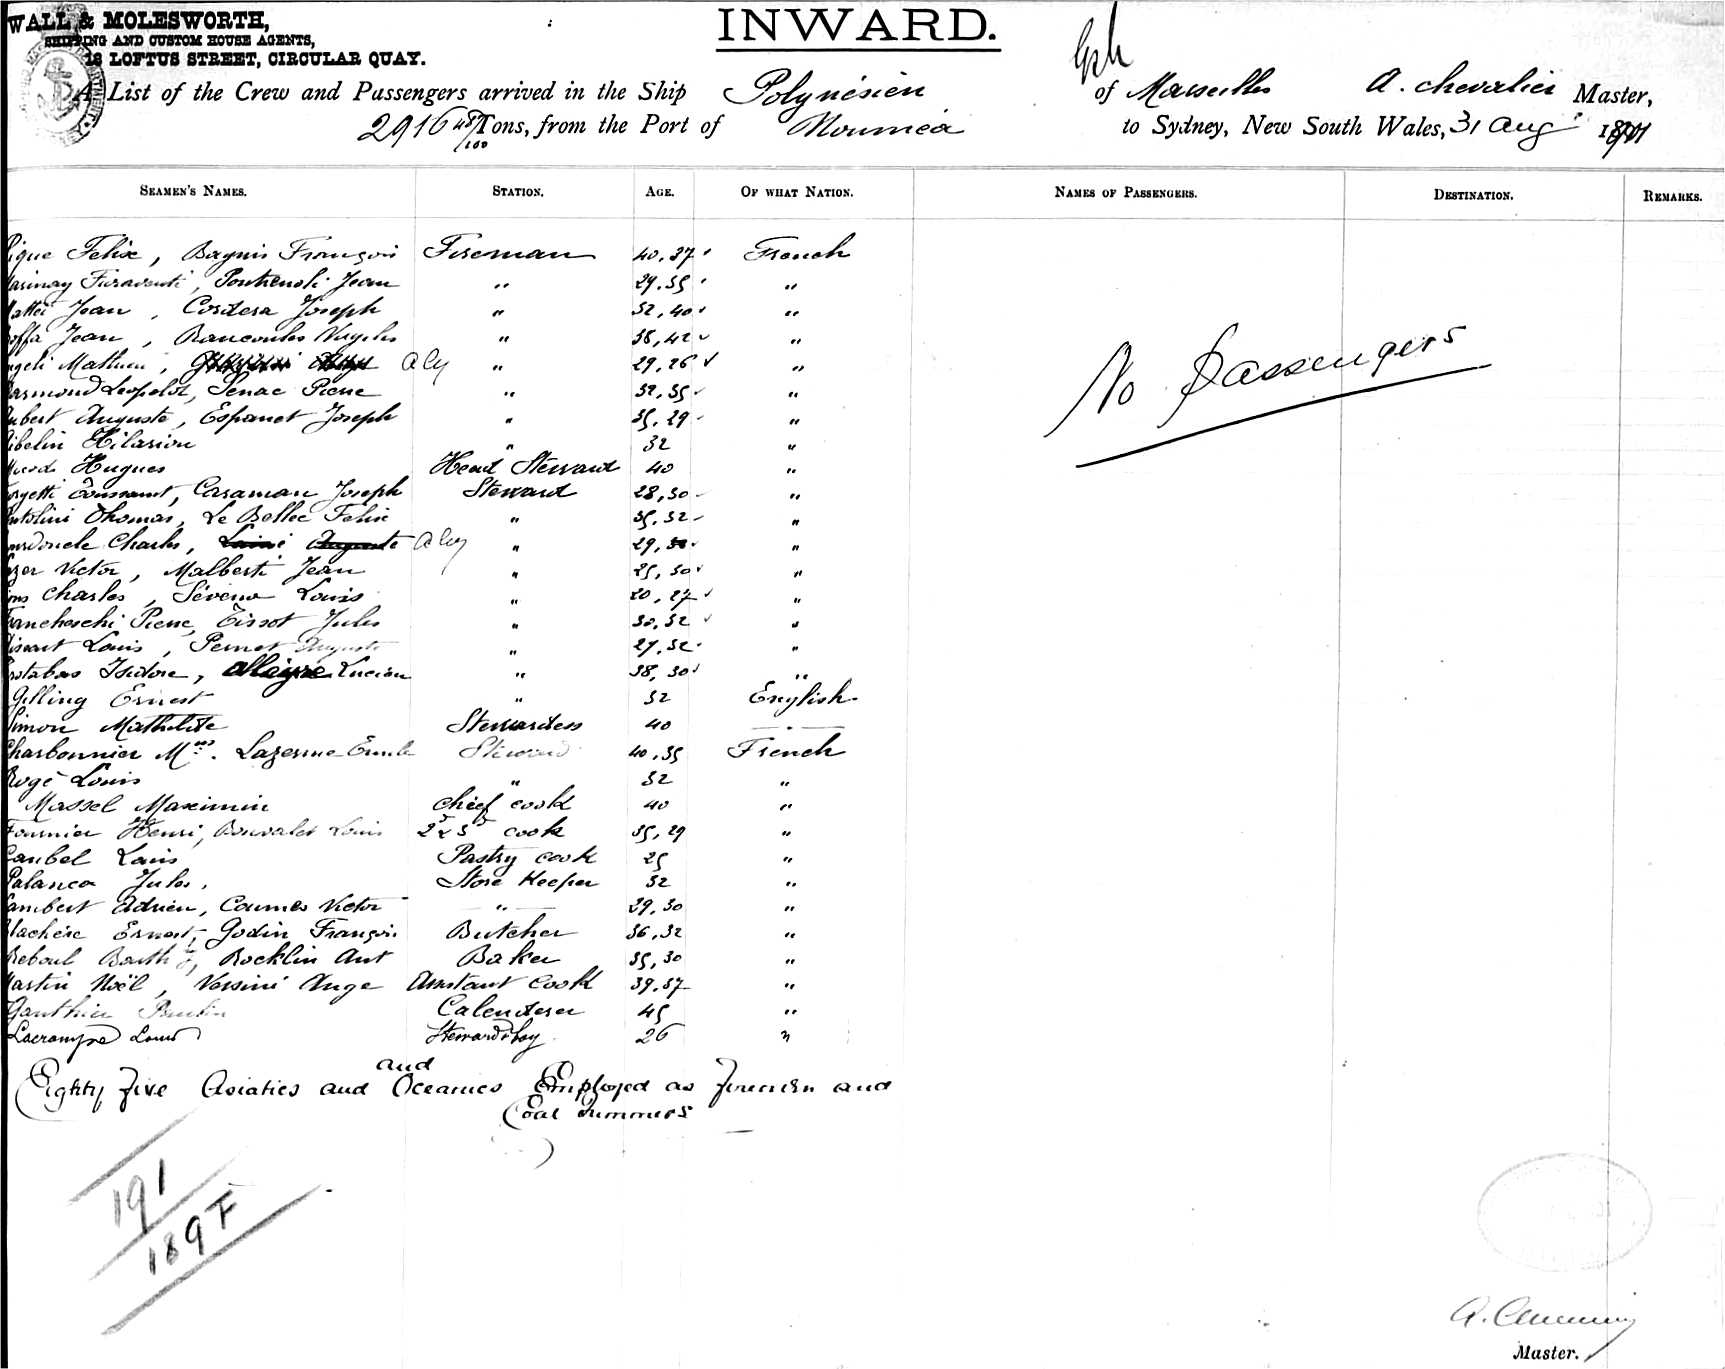 WALL & MOLESWORTH,
SHIPPING AND CUSTOM HOUSE AGENTS,
18 LOFTUS STREET, CIRCULAR QUAY.
INWARD.
A List of the Crew and Passengers arrived in the Ship Polynésien of Marseilles A. Chevalier Master,
2916 45/100 Tons, from the Port of Nouméa to Sydney, New South Wales, 31 Aug 1901
SEAMEN'S NAMES. STATION. AGE. OF WHAT NATION. NAMES OF PASSENGERS. DESTINATION. REMARKS.
ique Felix, François Fireman 40, 37 French
Jean " 29, 35 "
attei Jean, Cordesa Joseph " 32, 40 "
offa Jean, " 38, 42 "
ngeli Mathieu, Aly " 29, 26 "
Leopold, Senac Pierre " 32, 35 "
ubert Auguste, Espanet Joseph " 35, 29 "
ibelin Hilarion " 32 "
Hugues Head Steward 40 "
Toussaint, Caraman Joseph Steward 28, 30 "
ntolini Thomas, Le Bellec Felix " 35, 32 "
Charles, Auguste Aly " 29, 30 "
Victor, Malberti Jean " 25, 30 "
Charles, Louis " 20, 27 "
rancheschi Pierre, Tissot Jules " 30, 32 "
Louis, Pernet Auguste " 27, 32 "
Isidore, Allegre Lucien " 38, 30 "
Gelling Ernest " 32 English
Simon Mathilde Stewardess 40 "
Charbonnier Mus. Lazerme Emile Steward 40, 35 French
Rogé Louis " 32 "
Massel Maximin Chief cook 40 "
Fournier Henri, Bouvalet Louis 2d & 3d cook 35, 29 "
Caubel Louis Pastry cook 25 "
Palanca Jules. Store Keeper 32 "
Lambert Adrien, Coumes Victor " 29, 30 "
lachère Ernest, Godin François Butcher 36, 32 "
Reboul Barth, Rocklin Ant Baker 35, 30 "
Martin Noël, Versini Ange Assistant cook 39, 37 "
Gauthier Paulin 45 "
Lacrompe Louis Stewards boy 26 "
No Passengers
and
Eighty Five Asiatics and Oceanics Employed as Firemen and
Coal Trimmers
191
189 F
Master.